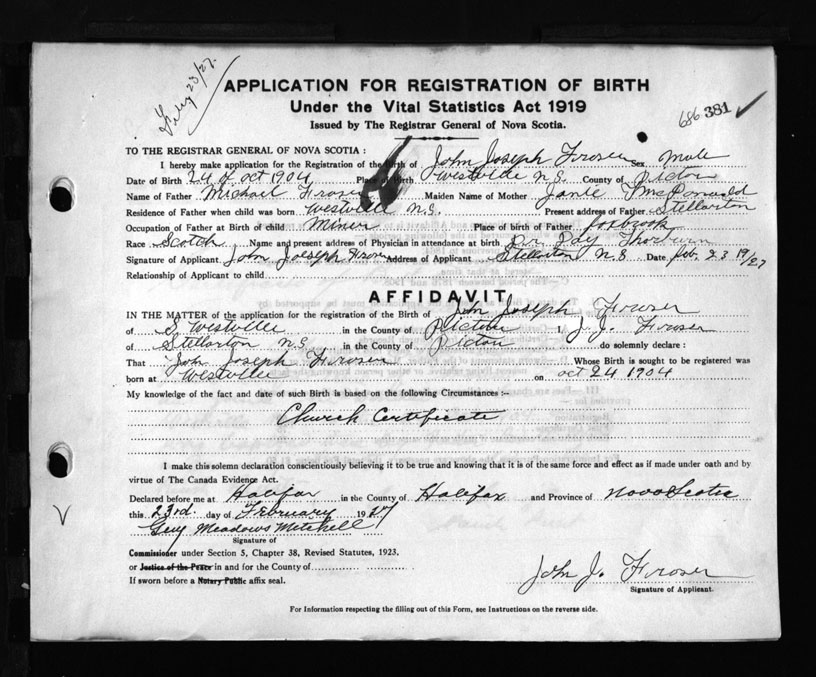 Feby 23/27.
APPLICATION FOR REGISTRATION OF BIRTH
Under the Vital Statistics Act 1919
686 381 ✓
Issued by The Registrar General of Nova Scotia.
TO THE REGISTRAR GENERAL OF NOVA SCOTIA :
I hereby make application for the Registration of the Birth of John Joseph Fraser Sex Male
Date of Birth 24 of oct 1904 Place of Birth Westville N.S. County of Pictou
Name of Father Michael Fraser Maiden Name of Mother Janie McDonald
Residence of Father when child was born Westville N.S. Present address of Father Stellarton
Occupation of Father at Birth of child Miner Place of birth of Father Foxbrook
Race Scotch Name and present address of Physician in attendance at birth Dr. Day Thorburn
Signature of Applicant John Joseph Fraser Address of Applicant Stellarton N.S Date Feb. 23 19/27
Relationship of Applicant to child
AFFIDAVIT
IN THE MATTER of the application for the registration of the Birth of John Joseph Fraser
of S. Westville in the County of Pictou I, J. J. Fraser
of Stellarton N.S. in the County of Pictou do solemnly declare :
That John Joseph Fraser Whose Birth is sought to be registered was
born at Westville on oct 24 1904
My knowledge of the fact and date of such Birth is based on the following Circumstances :–
Church Certificate
I make this solemn declaration conscientiously believing it to be true and knowing that it is of the same force and effect as if made under oath and by
virtue of The Canada Evidence Act.
Declared before me at Halifax in the County of Halifax and Province of Nova Scotia
this 23rd day of February 1927
Guy Meadows Mitchell
Signature of
Commissioner under Section 5, Chapter 38, Revised Statutes, 1923.
or Justice of the Peace in and for the County of
If sworn before a Notary Public affix seal.
John J. Fraser
Signature of Applicant.
For Information respecting the filling out of this Form, see Instructions on the reverse side.